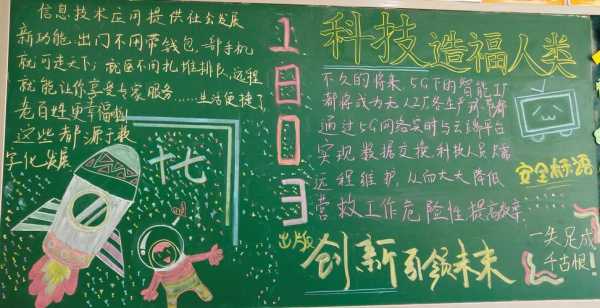 信息技术应用提供社会发展
新功能.出门不用带钱包.一部手机
就可走天下;就医不用扎堆排队、远程
就能让你享受专家服务……生活便捷了
老百姓更幸福啦
这些都源于数
字化发展
十七
1803
出版
科技造福人类
不久的将来5G下的智能工厂
都将成为无人工厂
通过5G网络实时与云端平台
实现数据交换 科技人员
远程维护 从而大大降低
营救工作危险性提高效率
创新引领未来
安全标语
一失足成
千古恨!